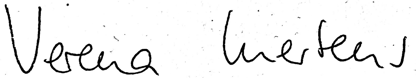 Verena Mertens